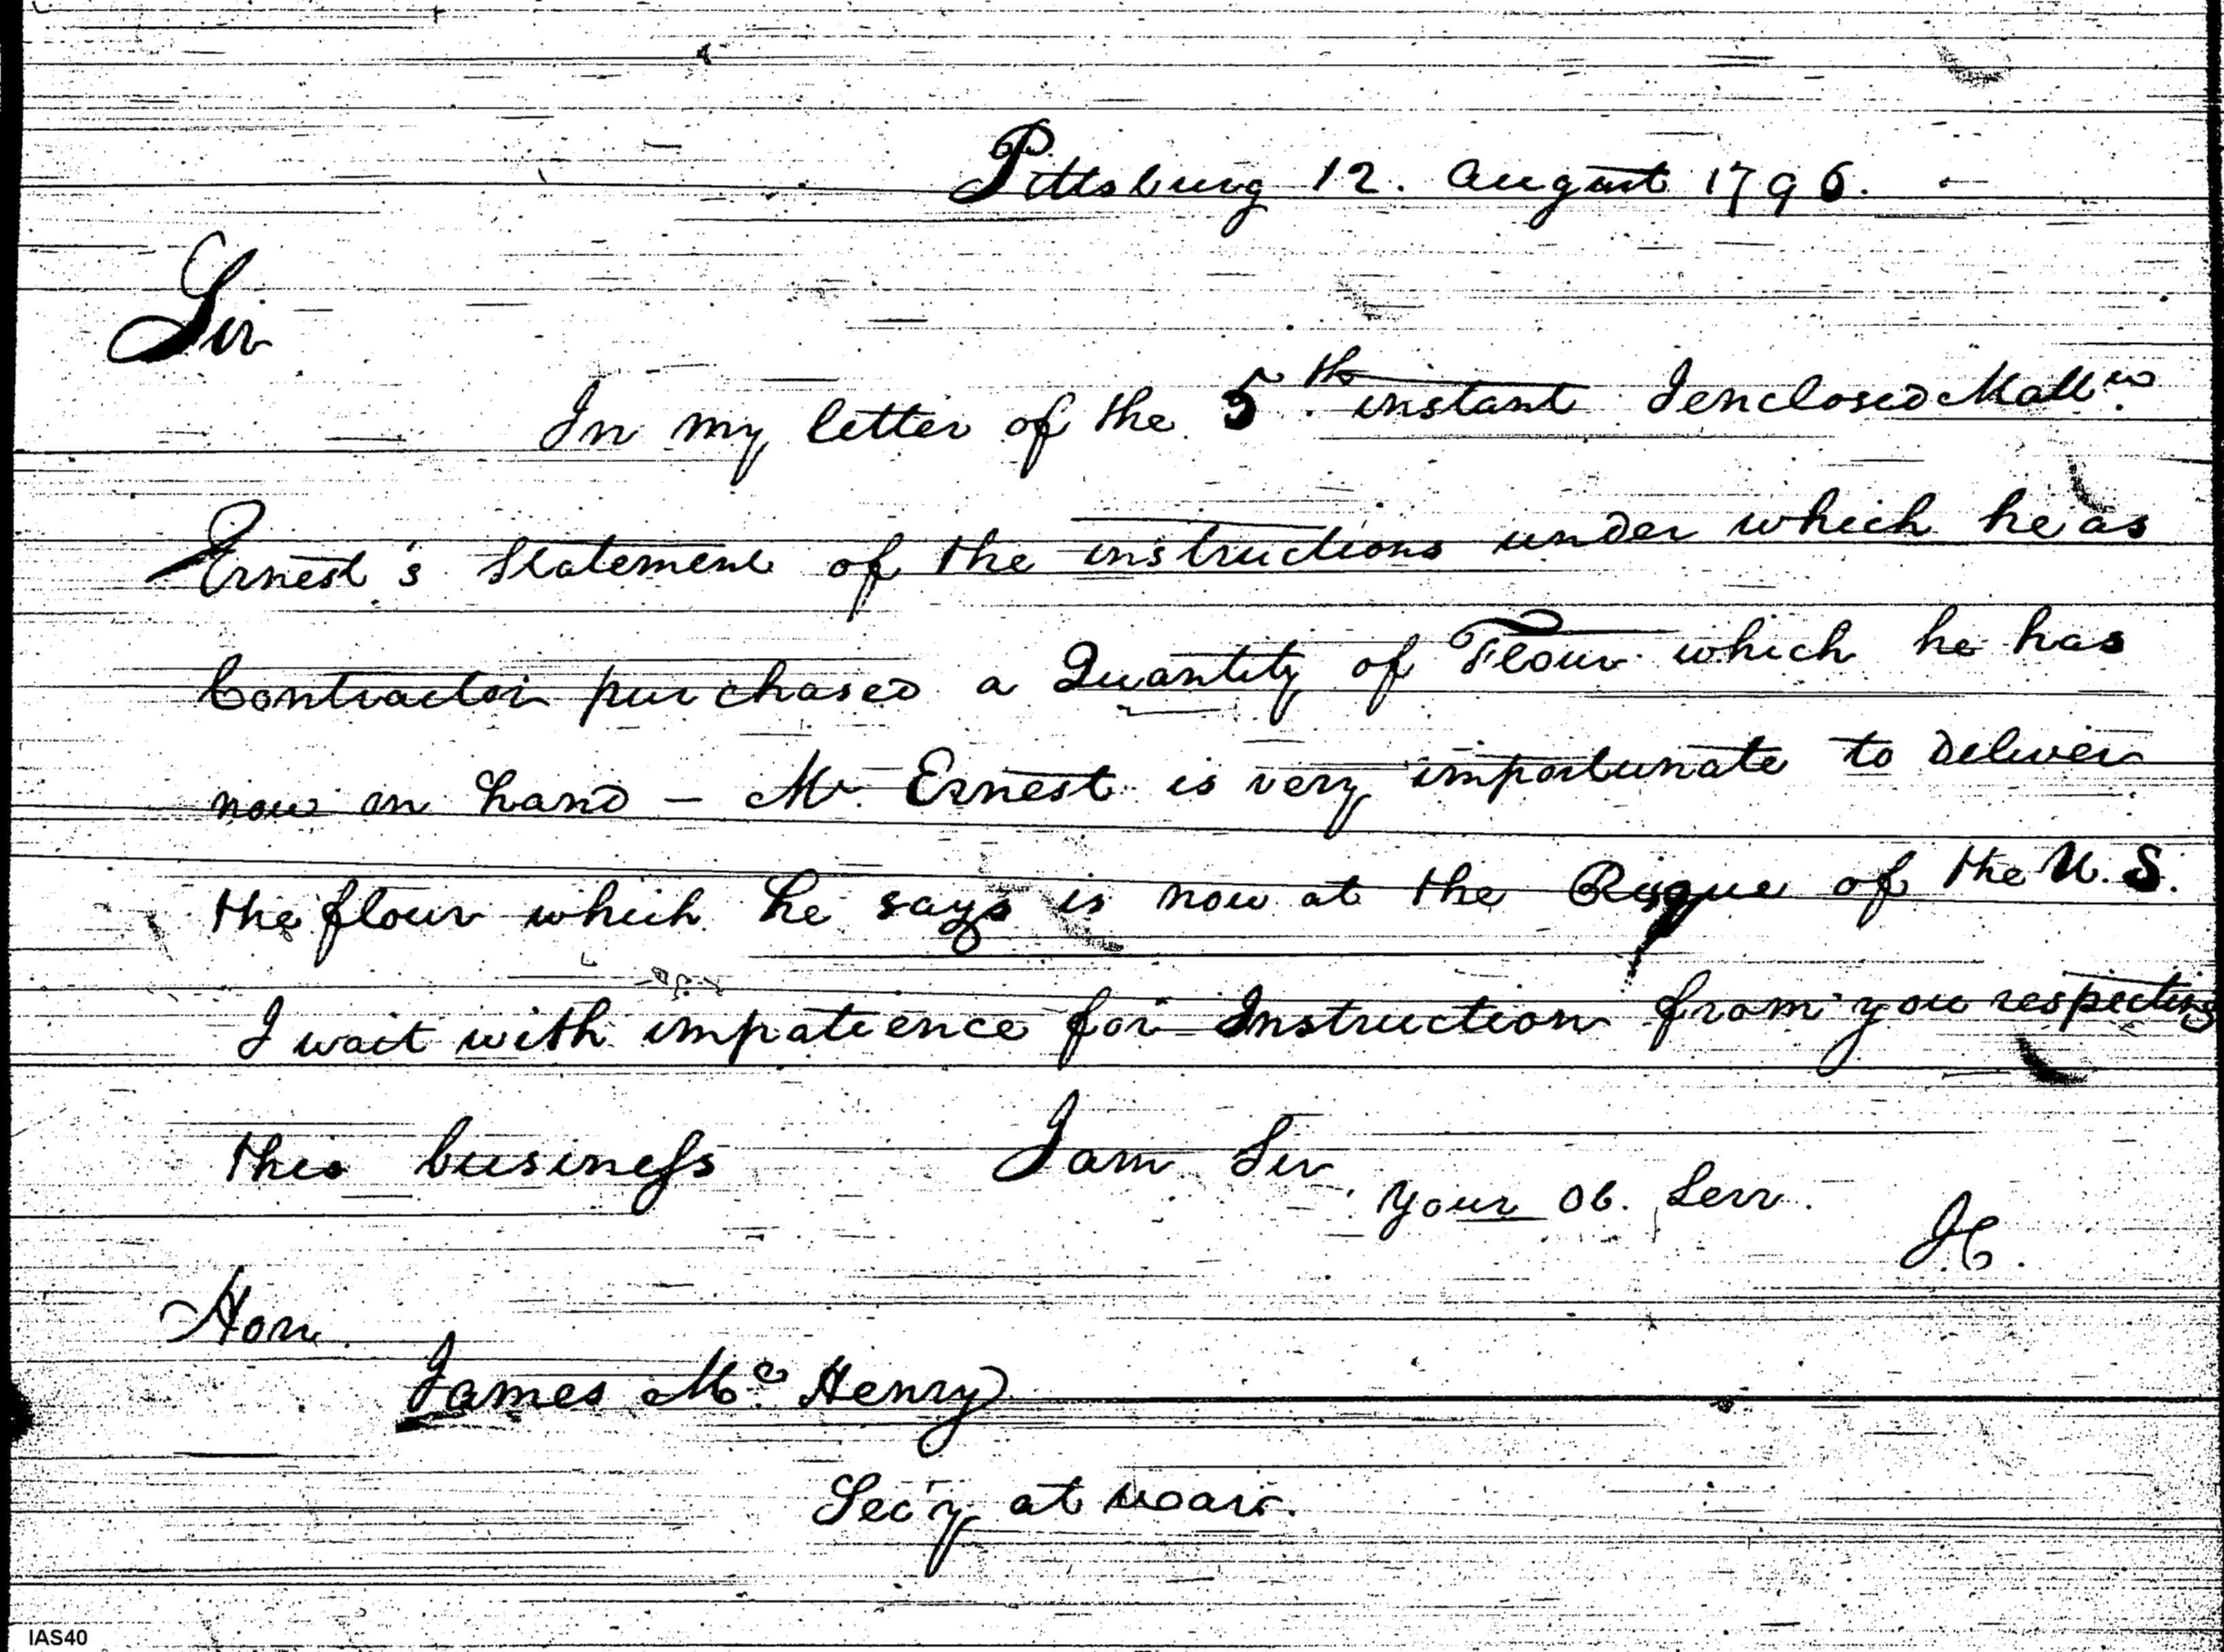 Pittsburg 12. August 1796.
Sir
In my letter of the 5th. instant I enclosed Matt.w
Ernest's Statement of the instructions under which he as
Contractor purchased a Quantity of Flour which he has
now on hand – Mr. Ernest is very importunate to deliver
the flour which he says is now at the Risque of the U.S.
I wait with impatience for Instruction from you respecting
this business I am Sir
Your Ob. Serv.
Hon
James Mc. Henry
Sec'y at war.
IAS40